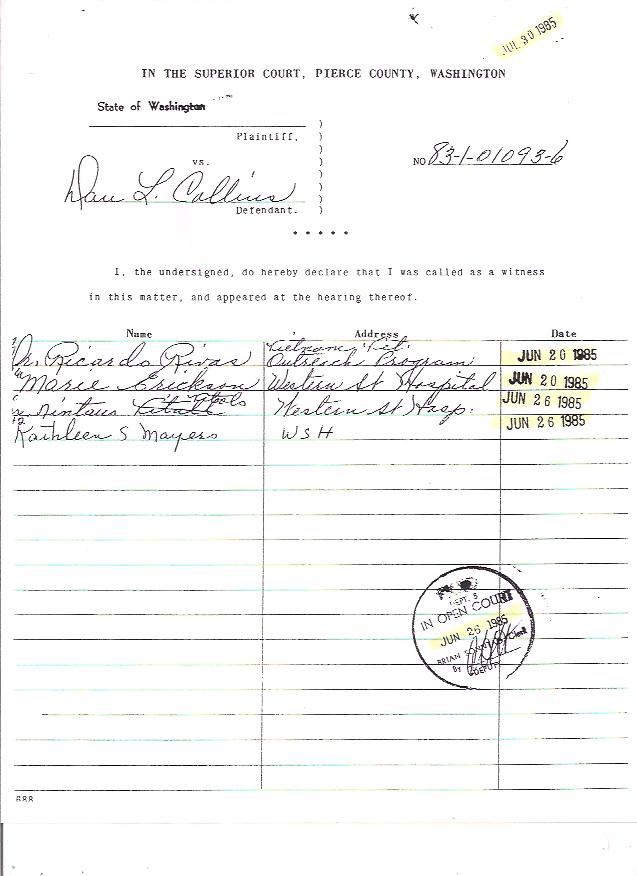 JUL 30 1985
IN THE SUPERIOR COURT, PIERCE COUNTY, WASHINGTON
State of Washington
Plaintiff,
vs.
NO 83-1-01093-6
Dan L. Collins
Defendant.
* * * * *
I, the undersigned, do hereby declare that I was called as a witness
in this matter, and appeared at the hearing thereof.
Name Address Date
Vietnam Vet.
Dr. Ricardo Rivas Outreach Program JUN 20 1985
Marie Erickson Western St Hospital JUN 20 1985
Western St Hosp. JUN 26 1985
Kathleen S Mayers WSH JUN 26 1985
DEPT. 5
IN OPEN COURT
JUN 26 1985
BRIAN Clerk
By DEPUTY
688